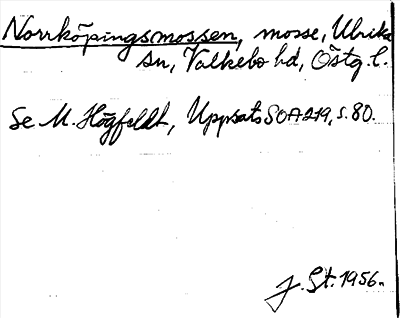 Norrköpingsmossen, mosse, Ulrika
sn, Valkebo hd, Östg. l.
Se M. Högfeldt, Uppsats SOA 219, s. 80.
J. St. 1956.